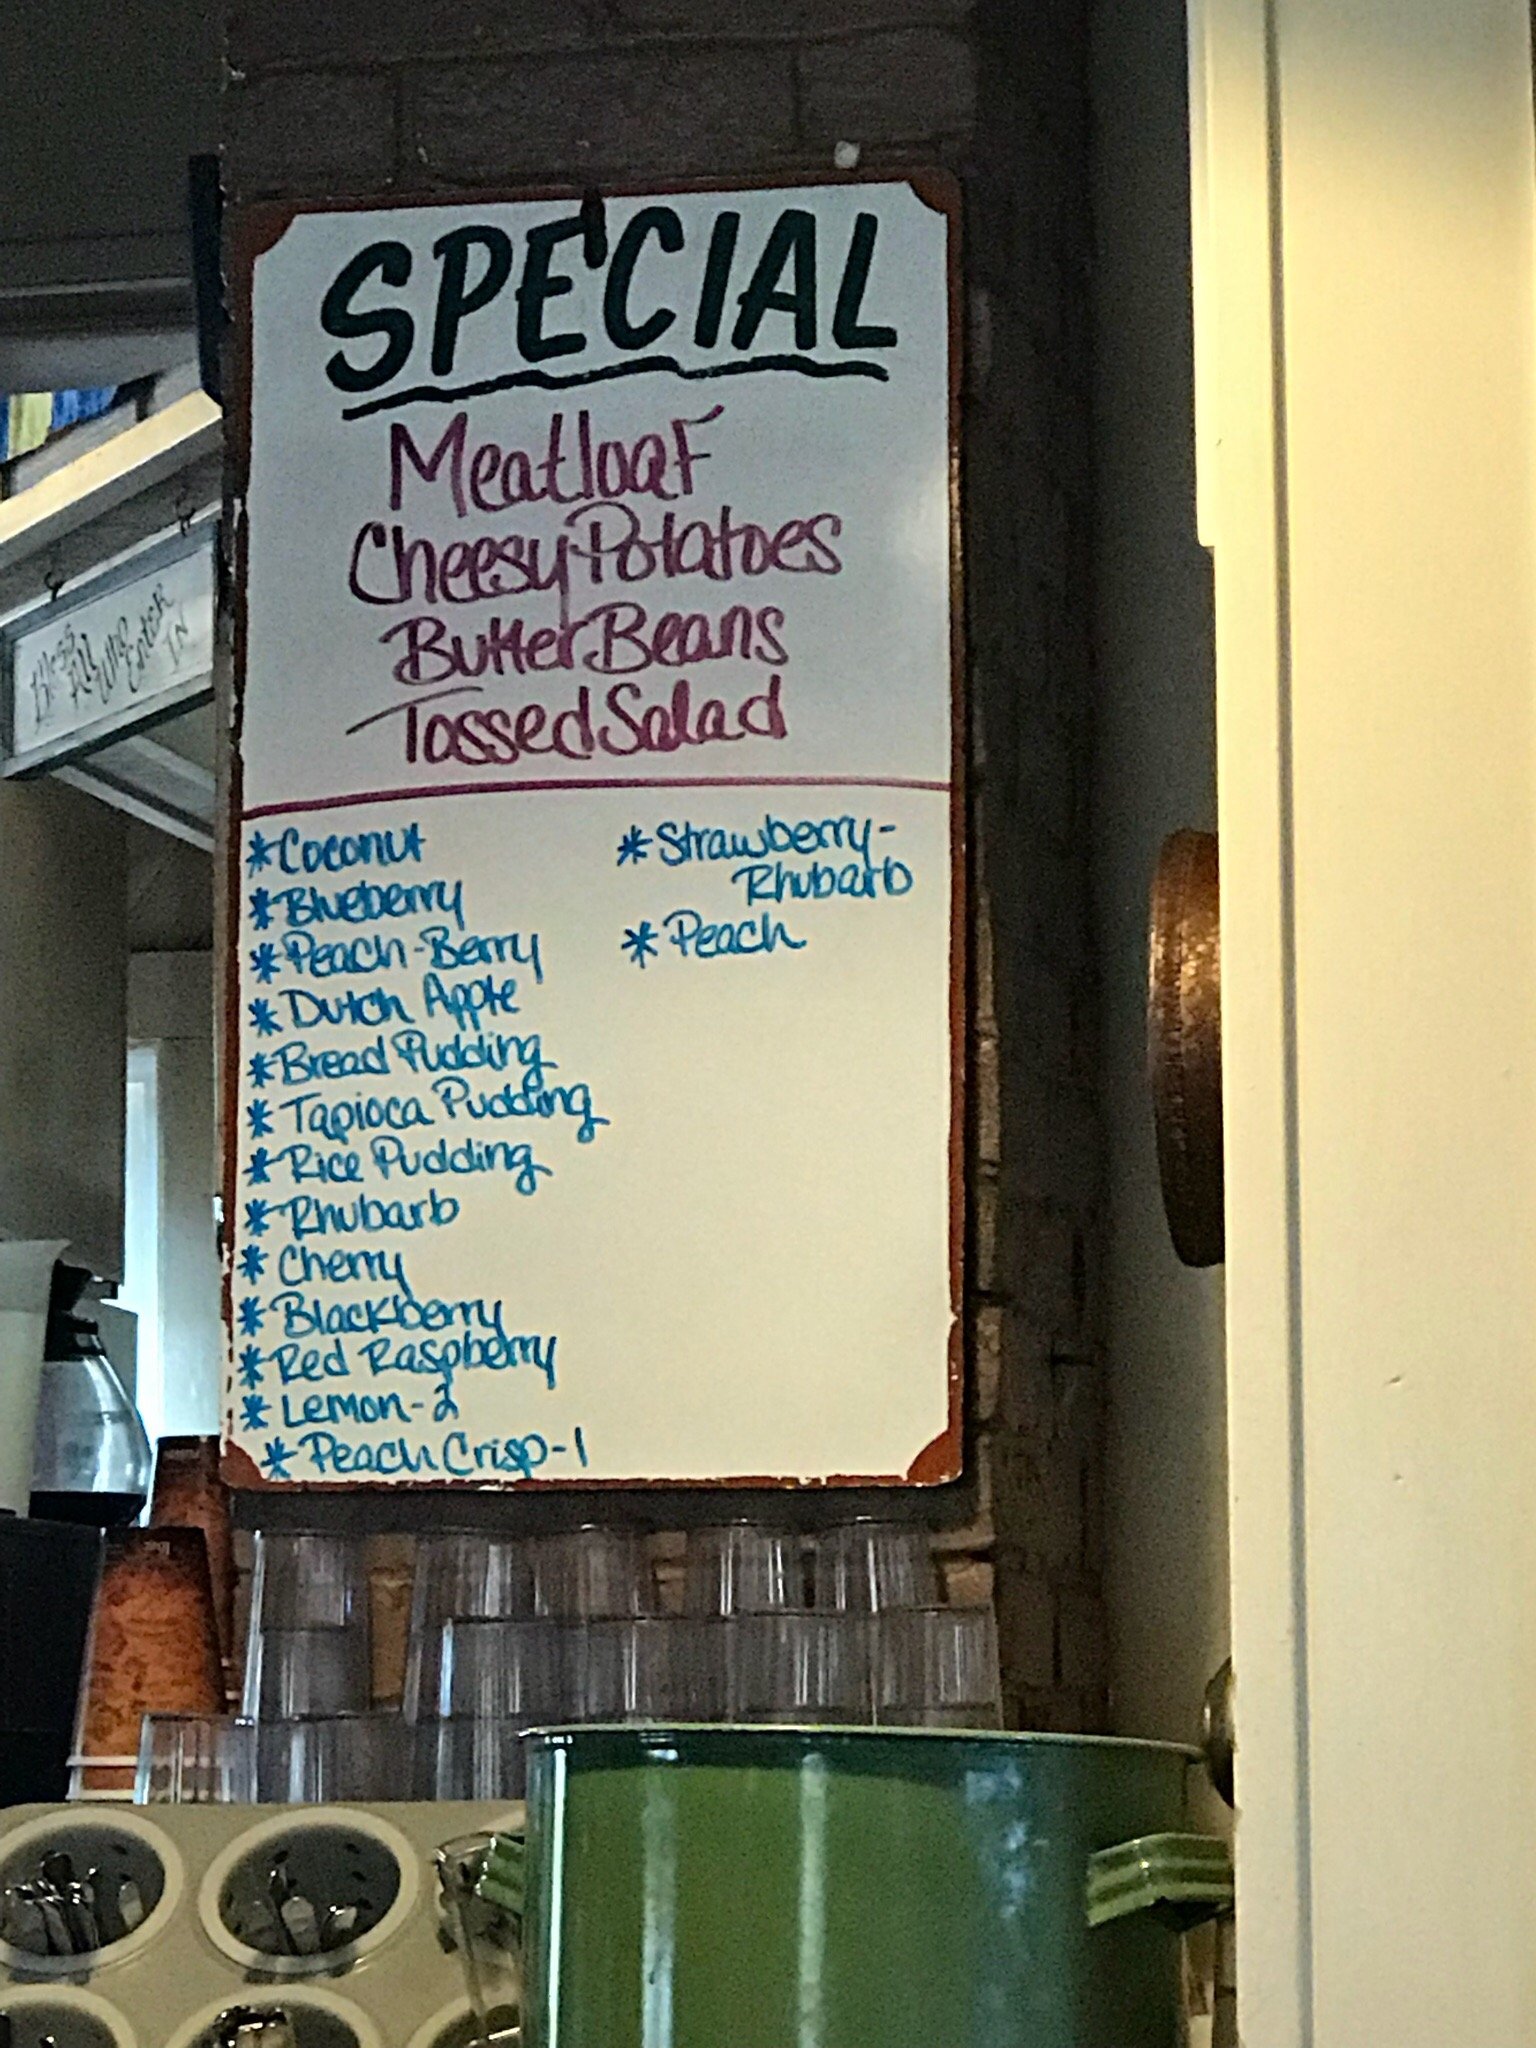 SPECIAL
Meatloaf
Cheesy Potatoes
Butter Beans
Tossed Salad
*Coconut
*Blueberry
*Peach-Berry
*Dutch Apple
*Bread Pudding
*Tapioca Pudding
*Rice Pudding
*Rhubarb
*Cherry
*Blackberry
*Red Raspberry
*Lemon-2
*Peach Crisp-1
*Strawberry-
Rhubarb
*Peach
Bless
All who
Enter
IN